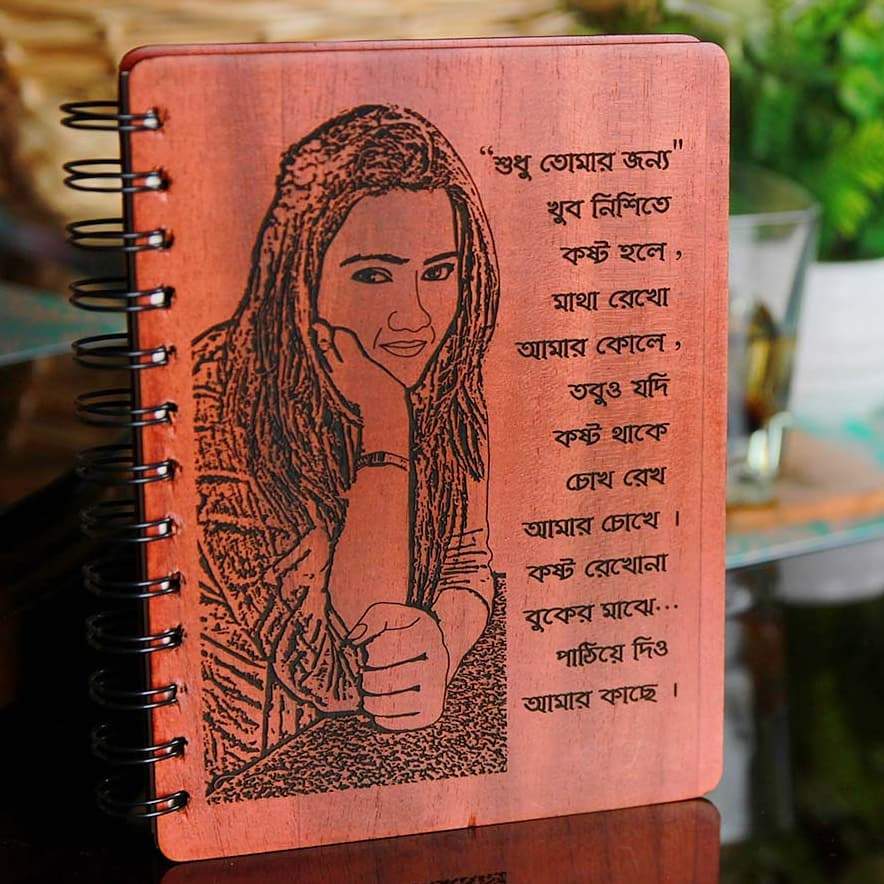 “শুধু তোমার জন্য"
খুব নিশিতে
কষ্ট হলে ,
মাথা রেখো
আমার কোলে ,
তবুও যদি
কষ্ট থাকে
চোখ রেখ
আমার চোখে ।
কষ্ট রেখোনা
বুকের মাঝে...
পাঠিয়ে দিও
আমার কাছে ।